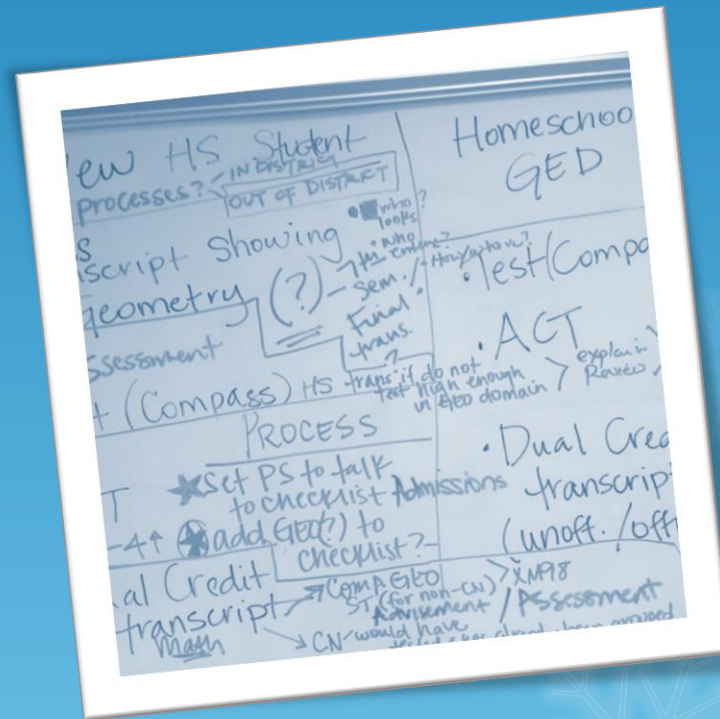 ew HS Student
processes?
IN DISTRICT
OUT OF DISTRICT
script Showing
Geometry (?)
who looks?
who enters?
How/where?
Sem.
Final trans.
?
ssessment
t (Compass) HS trans if do not
test high enough
in GEO domain
PROCESS
Set PS to talk
to checklist Admissions
add GEO(?) to
checklist?
T
-4↑
al Credit
transcript
Math
COMPAGEO
ST (for non-CN)
Advisement
XM98
/Assessment
CN-would have
Homeschoo
GED
• Test (Compa
• ACT
explain
Review
• Dual Cred
transcrip
(unoff. / off